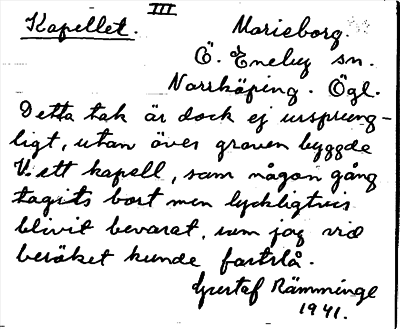 III
Kapellet.
Marieborg.
Ö. Eneby sn.
Norrköping. Ögl.
Detta tak är dock ej ursprung-
ligt, utan över graven byggde
ett kapell, som någon gång
tagits bort men lyckligtvis
blivit bevarat, som jag vid
besöket kunde fastslå.
Gustaf Rämminge
1941.